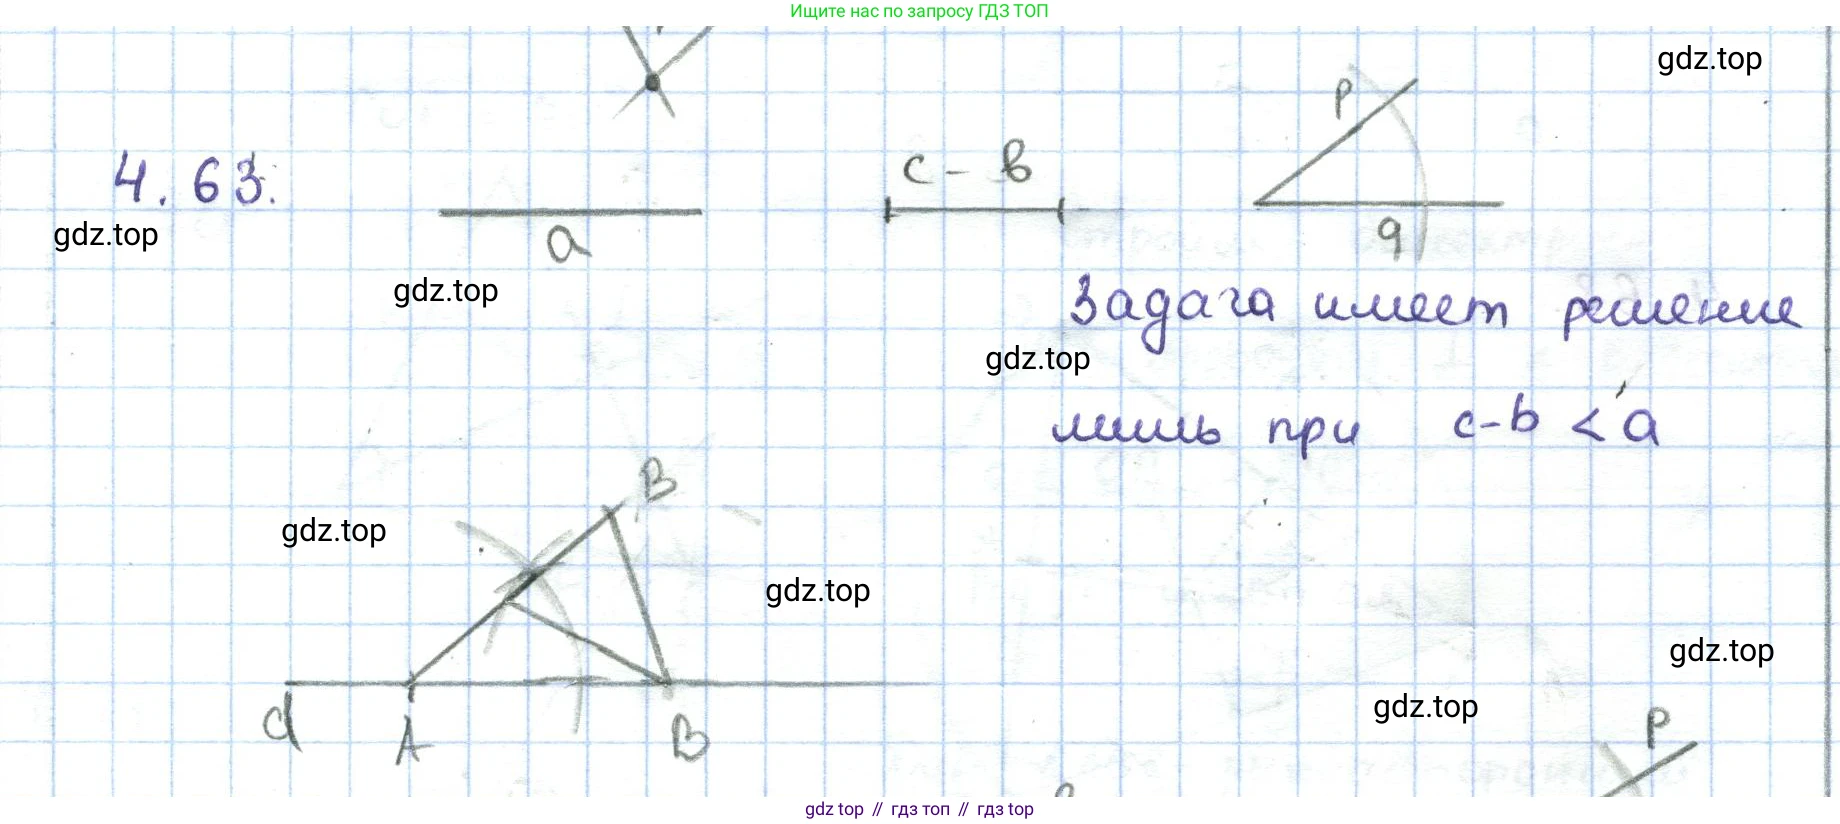 Ищите нас по запросу ГДЗ ТОП
gdz.top
4.63.
a
c - b
p
q
gdz.top
gdz.top
Задача имеет решение
gdz.top
лишь при c-b < a
B
gdz.top
gdz.top
gdz.top
gdz.top
d
A
B
p
gdz top // гдз топ // гдз top